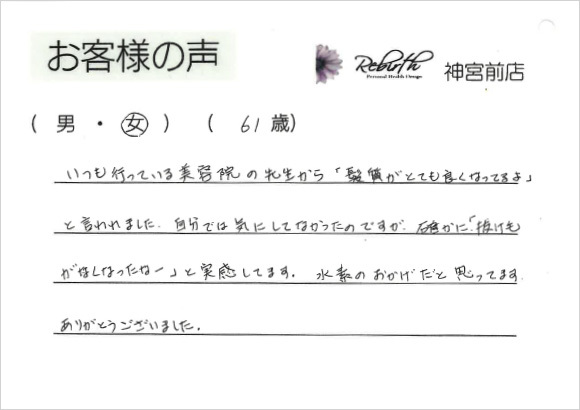 お客様の声
Rebirth
Personal Health Design
神宮前店
( 男 ・ 女 ) ( 61歳)
いつも行っている美容院の先生から「髪質がとても良くなってるよ」
と言われました. 自分では気にしてなかったのですが、確かに「抜け毛
がなくなったなー」と実感してます. 水素のおかげだと思ってます.
ありがとうございました.